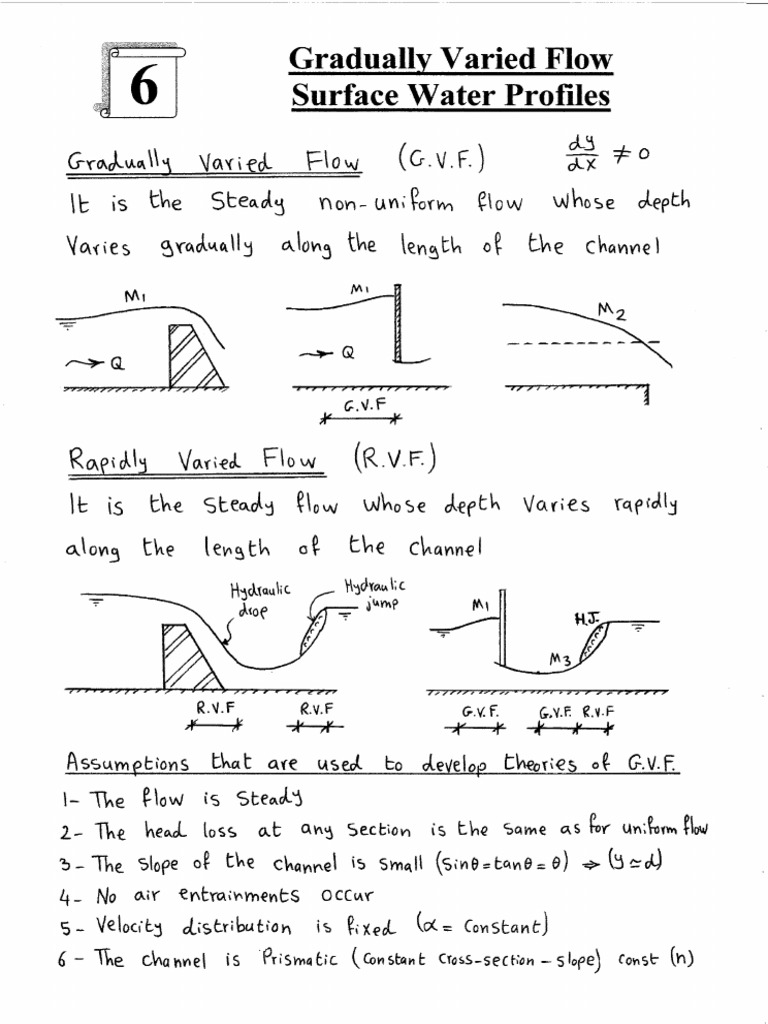 6
Gradually Varied Flow
Surface Water Profiles
Gradually Varied Flow (G.V.F.) dy/dx ≠ 0
It is the Steady non-uniform flow whose depth
Varies gradually along the length of the channel
M1
Q
M1
Q
G.V.F
M2
Rapidly Varied Flow (R.V.F.)
It is the Steady flow whose depth Varies rapidly
along the length of the channel
Hydraulic
drop
Hydraulic
jump
R.V.F
R.V.F
M1
H.J.
M3
G.V.F.
G.V.F.
R.V.F
Assumptions that are used to develop theories of G.V.F.
1- The flow is Steady
2- The head loss at any section is the same as for uniform flow
3- The slope of the channel is small (sinθ=tanθ=θ) ⇒ (y≃d)
4- No air entrainments occur
5- Velocity distribution is fixed (α = Constant)
6- The channel is Prismatic (Constant Cross-section-slope) const (n)